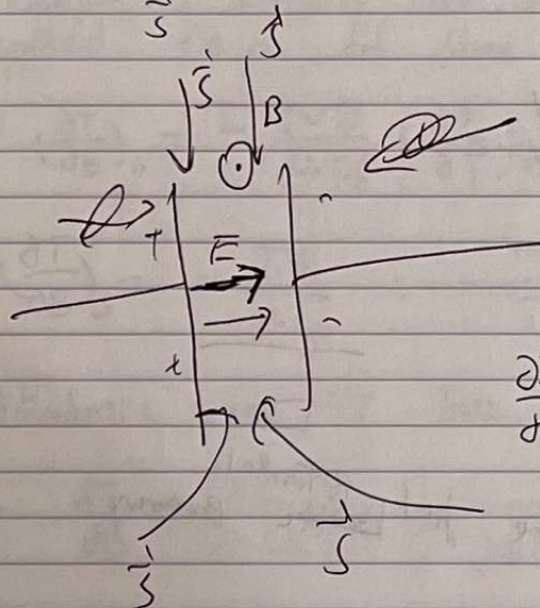 S
S
S
B
+
E
-
+
-
∂
S
S